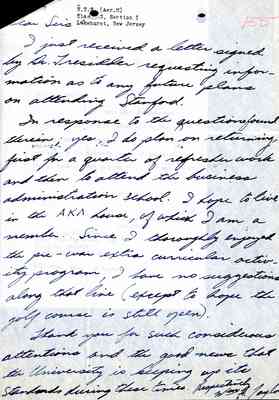 (Aer.M)
Section I
Lakehurst, New Jersey
Dear Sirs
I just received a letter signed
by Dr. Tresidder requesting infor-
mation as to any future plans
on attending Stanford.
In response to the question found
therein, yes, I do plan on returning
first for a quarter of refresher work
and then to attend the business
administration school. I hope to live
in the AKΛ house, of which I am a
member. Since I thoroughly enjoyed
the pre-war extra curricular activ-
ity program, I have no suggestions
along that line (except to hope the
golf course is still open).
Thank you for such considerous
attentions and the good news that
the University is keeping up its
standards during these times. Respectfully